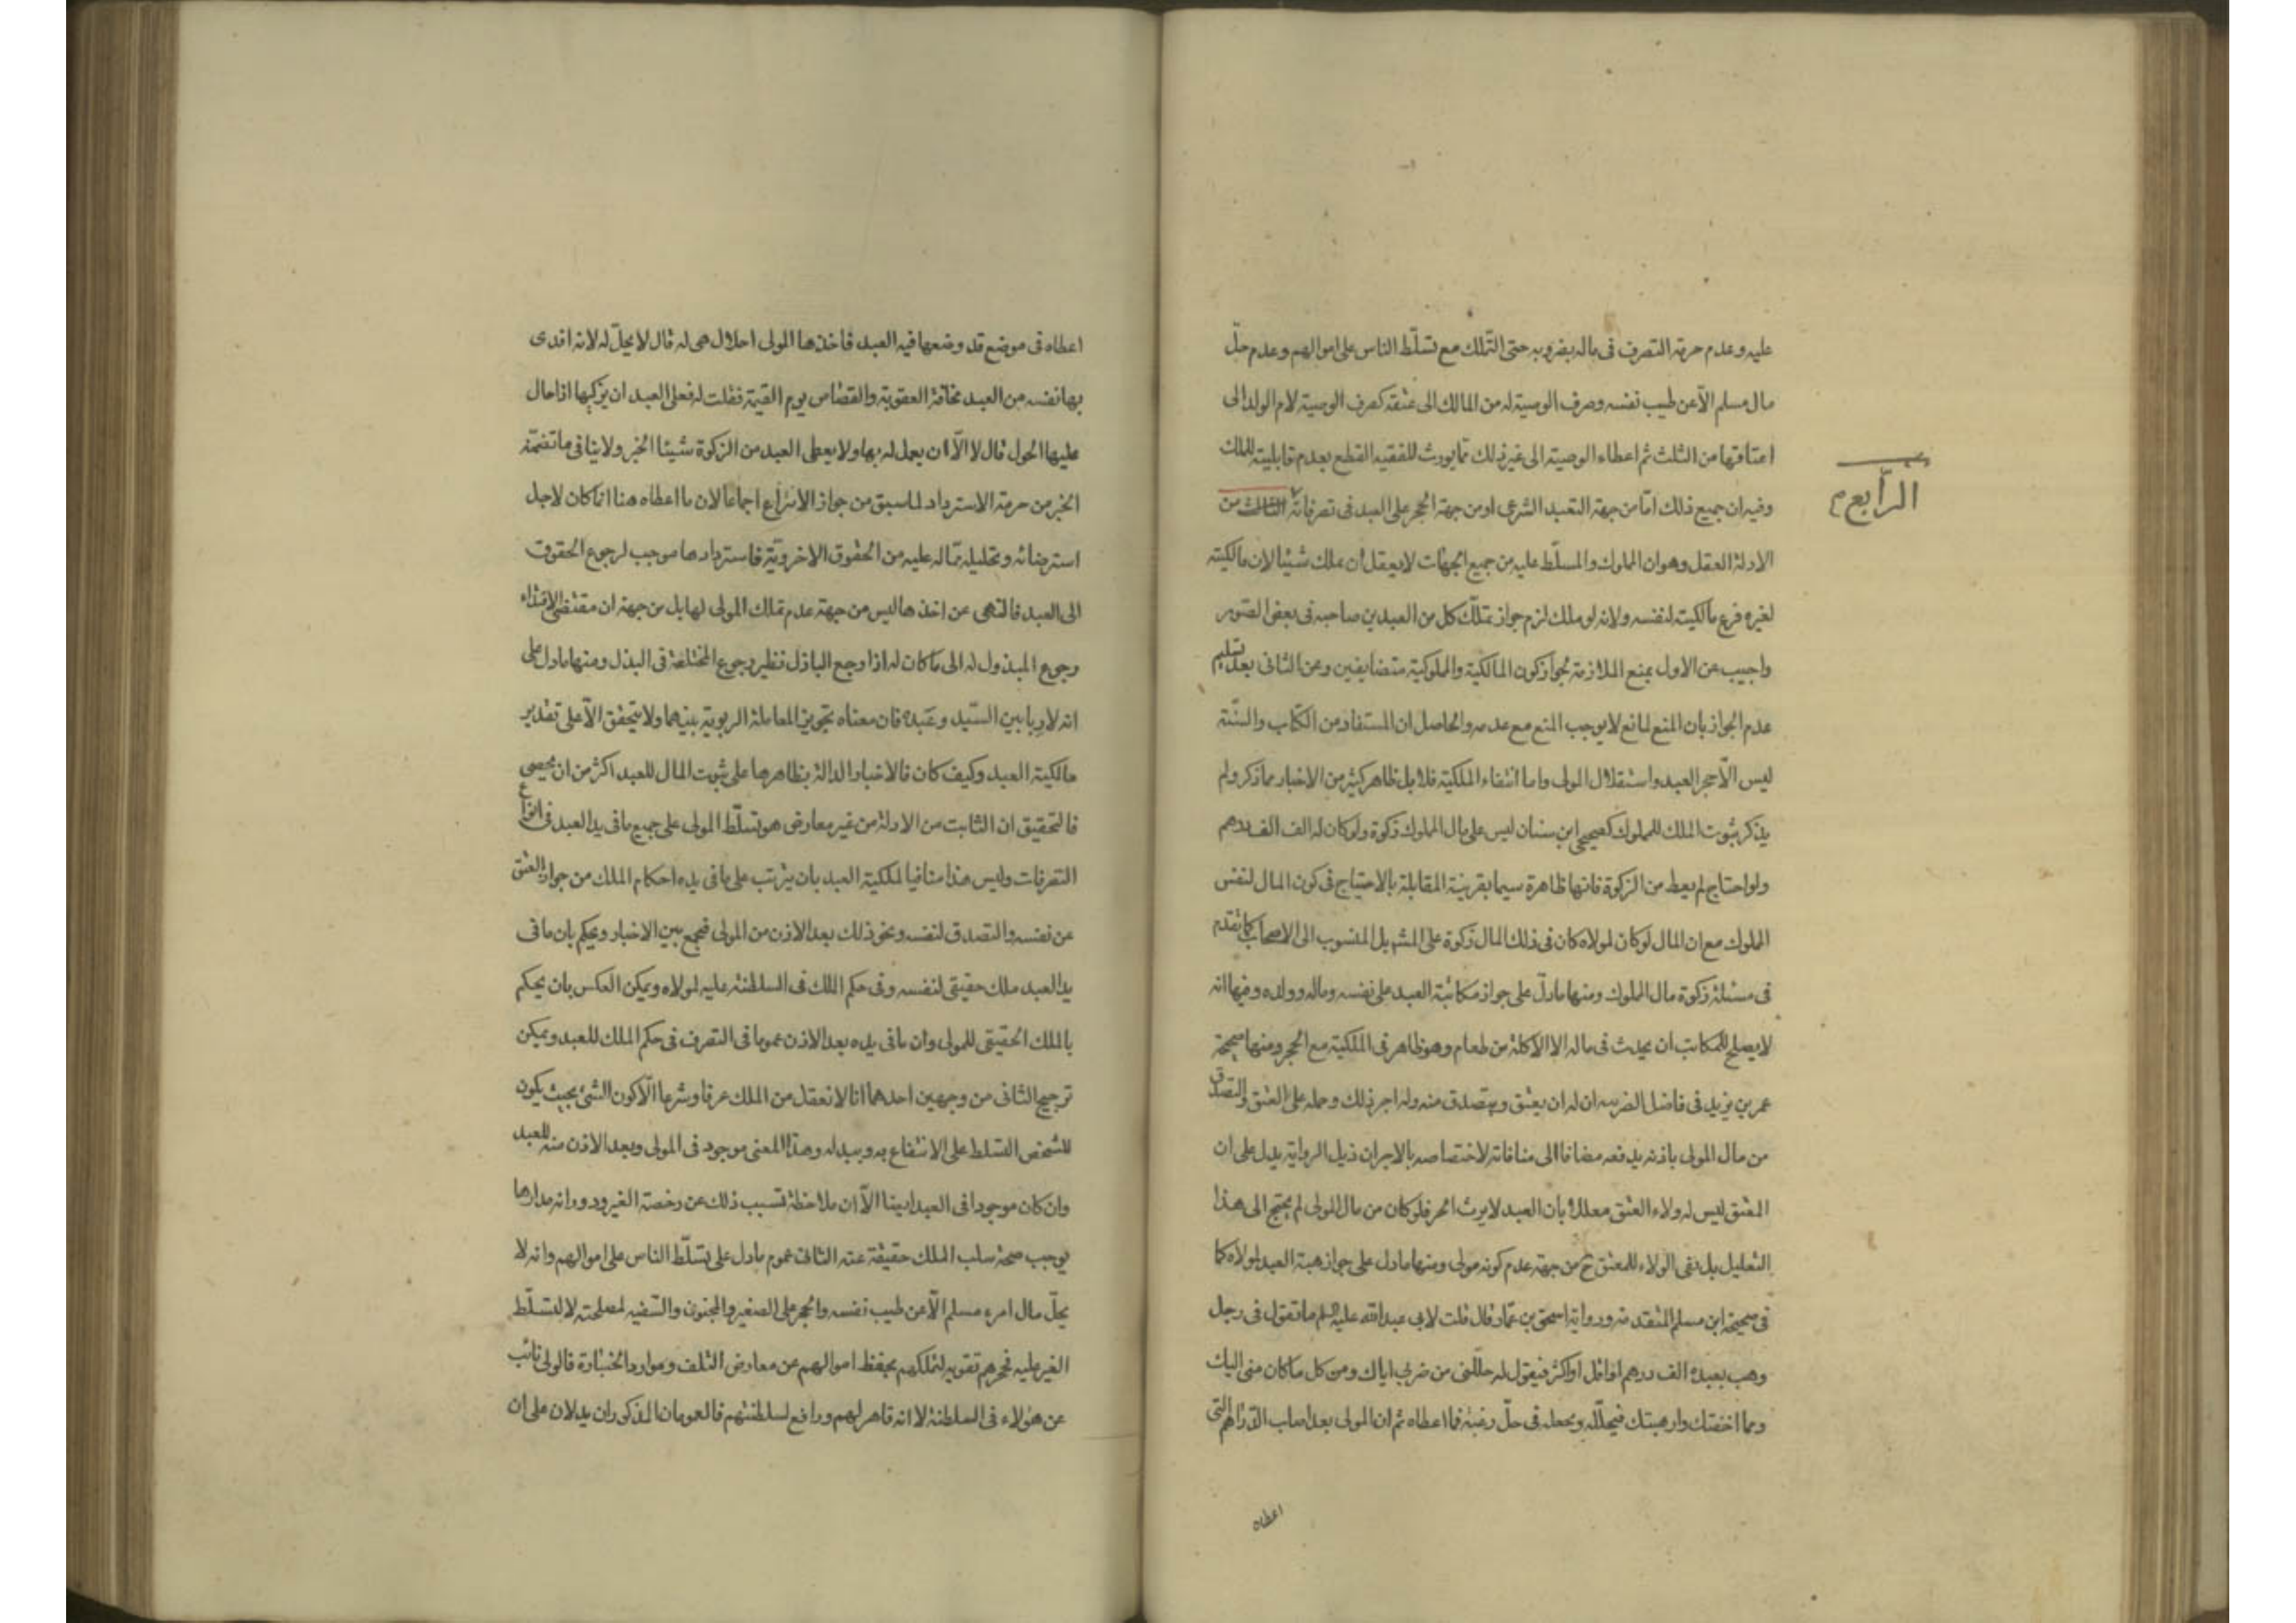 عليه وعدم حرمة التصرف فى ماله بضروبه حتى التملك مع تسلّط الناس على اموالهم وعدم حلّ
مال مسلم الّا عن طيب نفسه وصرف الوصية له من المالك الى عتقه كصرف الوصية لام الولد الى
اعتاقها من الثلث ثم اعطاء الوصية الى غير ذلك ممّا يورث للفقيه القطع بعدم قابليته للملك
وفيه ان جميع ذلك امّا من جهة التعبد الشرعى او من جهة الحجر على العبد فى تصرفاته الثالث من
الرّابع م
الادلة العقل وهو ان المملوك والمسلّط عليه من جميع الجهات لا يعقل ان يملك شيئا لان مالكيته
لغيره فرع مالكيته لنفسه ولانه لو ملك لزم جواز تملّك كل من العبدين صاحبه فى بعض الصّور
واجيب عن الاول بمنع الملازمة لجواز كون المالكية والمملوكية متضايفين وعن الثانى بعد تسليم
عدم الجواز بان المنع لمانع لا يوجب المنع مع عدمه والحاصل ان المستفاد من الكتاب والسّنّة
ليس الّا حجر العبد واستقلال المولى واما انتفاء الملكية فلا بل ظاهر كثير من الاخبار مما ذكر ولم
يذكر ثبوت الملك للمملوك كصحيحى ابن سنان ليس على مال المملوك زكوة ولو كان له الف الف درهم
ولو احتاج لم يعط من الزكوة فانها ظاهرة سيما بقرينة المقابلة بالاحتياج فى كون المال لنفس
المملوك مع ان المال لو كان لمولاه كان فى ذلك المال زكوة على المشه بل المنسوب الى الاصحاب كما تقدم
فى مسئلة زكوة مال المملوك ومنها ما دلّ على جواز مكاتبة العبد على نفسه وماله وولده وفيها انه
لا يصلح للمكاتب ان يحدث فى ماله الا الاكلة من طعام وهو ظاهر فى الملكية مع الحجر ومنها صحيحة
عمر بن يزيد فى فاضل الضريبه ان له ان يعتق ويتصدق منه وله اجر ذلك وحمله على العتق والتصدق
من مال المولى باذنه يدفعه مضافا الى منافاته لاختصاصه بالاجر ان ذيل الرواية يدل على ان
المعتق ليس له ولاء العتق معللا بان العبد لا يرث الحر فلو كان من مال المولى لم يحتج الى هذا
التعليل بل نفى الولاء للمعتق ح من جهة عدم كونه مولى ومنها ما دل على جواز هبة العبد لمولاه كما
فى صحيحة ابن مسلم المتقدمه ورواية اسحق بن عمّار قال قلت لابى عبد الله عليه السلم ما تقول فى رجل
وهب بعبده الف درهم او اقل او اكثر فيقول له حللنى من ضربى اياك ومن كل ما كان منى اليك
ومما اخفتك وارهبتك فيحلّله ويجعله فى حلّ رغبة فما اعطاه ثم ان المولى بعد اصاب الدّراهم التى
اعطاه
اعطاه فى موضع قد وضعها فيه العبد فاخذها المولى احلال هى له قال لا يحلّ له لانه افتدى
بها نفسه من العبد مخافة العقوبة والقصاص يوم القيمة فقلت له فعلى العبد ان يزكّيها اذا حال
عليها الحول قال لا الّا ان يعمل له بها ولا يعطى العبد من الزكوة شيئا الخبر ولا ينافى ما تضمّنه
الخبر من حرمة الاسترداد لما سبق من جواز الانتزاع اجماعا لان ما اعطاه هنا انما كان لاجل
استرضائه وتحليله ممّا له عليه من الحقوق الاخرويّة فاستردادها موجب لرجوع الحقوق
الى العبد فالنهى عن اخذها ليس من جهة عدم تملك المولى لها بل من جهة ان مقتضى الافتداء
رجوع المبذول له الى ما كان له اذا رجع الباذل نظير رجوع المختلعة فى البذل ومنها ما دل على
انه لا ربا بين السّيد وعبده فان معناه تجويز المعاملة الربوية بينهما ولا يتحقق الّا على تقدير
مالكية العبد وكيف كان فالاخبار الدالة بظاهرها على ثبوت المال للعبد اكثر من ان يحصى
فالتحقيق ان الثابت من الادلة من غير معارض هو تسلّط المولى على جميع ما فى يد العبد فى انواع
التصرفات وليس هذا منافيا لملكية العبد بان يترتب على ما فى يده احكام الملك من جواز العتق
عن نفسه والتصدق لنفسه ونحو ذلك بعد الاذن من المولى فيجمع بين الاخبار ويحكم بان ما فى
يد العبد ملك حقيقى لنفسه وفى حكم الملك فى السلطنة عليه لمولاه ويمكن العكس بان يحكم
بالملك الحقيقى للمولى وان ما فى يده بعد الاذن عموما فى التصرف فى حكم الملك للعبد ويمكن
ترجيح الثانى من وجهين احدهما انا لا نعقل من الملك عرفا وشرعا الّا كون الشئ بحيث يكون
للشخص التسلط على الانتفاع به وببدله وهذا المعنى موجود فى المولى وبعد الاذن منه للعبد
وان كان موجودا فى العبد ايضا الّا ان ملاحظة تسبب ذلك عن رخصة الغير ودورانه مدارها
يوجب صحة سلب الملك حقيقة عنه الثانى عموم ما دل على تسلّط الناس على اموالهم وانه لا
يحلّ مال امرء مسلم الّا عن طيب نفسه والحجر على الصغير والمجنون والسّفيه لمصلحته لا لتسلّط
الغير عليه فحجرهم تقوية لتملكهم بحفظ اموالهم عن معارض التلف وموارد الخسارة فالولى نائب
عن هؤلاء فى السلطنة لا انه قاهر لهم ورافع لسلطنتهم فالعمومان المذكوران يدلان على ان